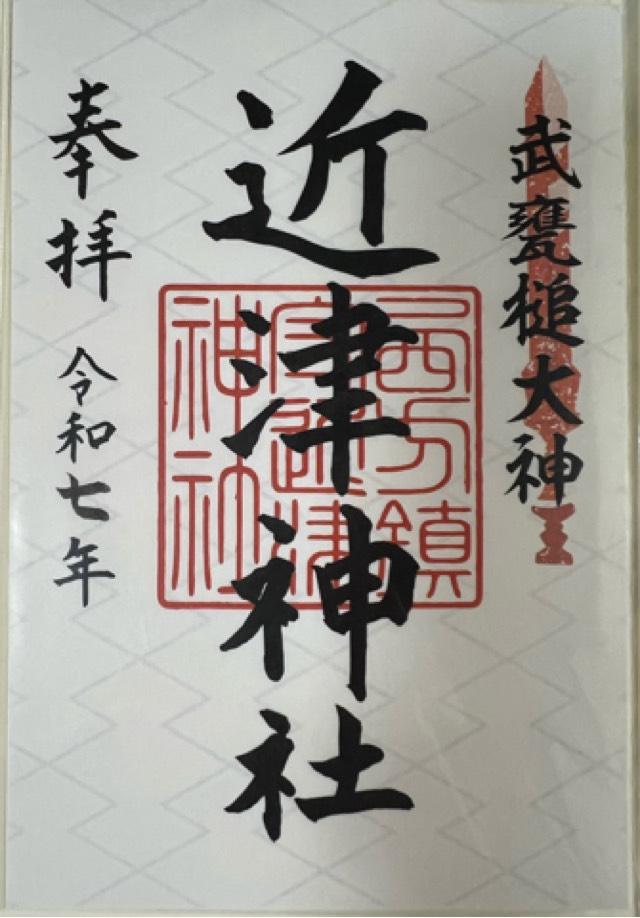 武甕槌大神
近津神社
西方鎮
守近津
神社
奉拝 令和七年